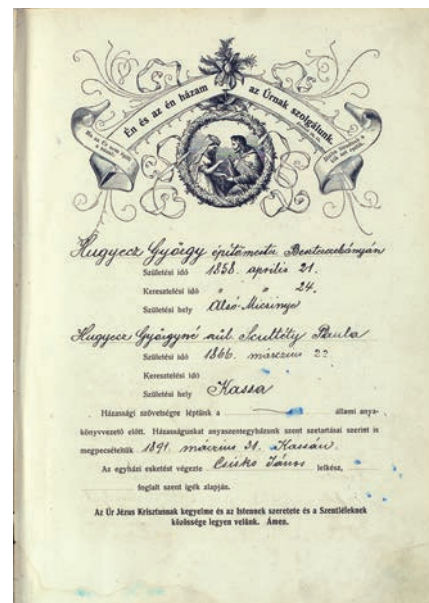 Én és az én házam az Úrnak szolgálunk.
Ha az Úr nem építi
a házat,
hiába dolgoznak a
kik azt építik.
Hugyecz György építőmester Beszterczebányán
Születési idő 1858. április 21.
Keresztelési idő " " 24.
Születési hely Alsó-Micsinye
Hugyecz Györgyné szül. Scultéty Paula
Születési idő 1866. márczius 22
Keresztelési idő
Születési hely Kassa
Házassági szövetségre léptünk a állami anya-
könyvvezető előtt. Házasságunkat anyaszentegyházunk szent szertartásai szerint is
megpecsételtük 1891. márczius 31. Kassán.
Az egyházi esketést végezte Csiskó János lelkész,
foglalt szent igék alapján.
Az Úr Jézus Krisztusnak kegyelme és az Istennek szeretete és a Szentléleknek
közössége legyen velünk. Ámen.